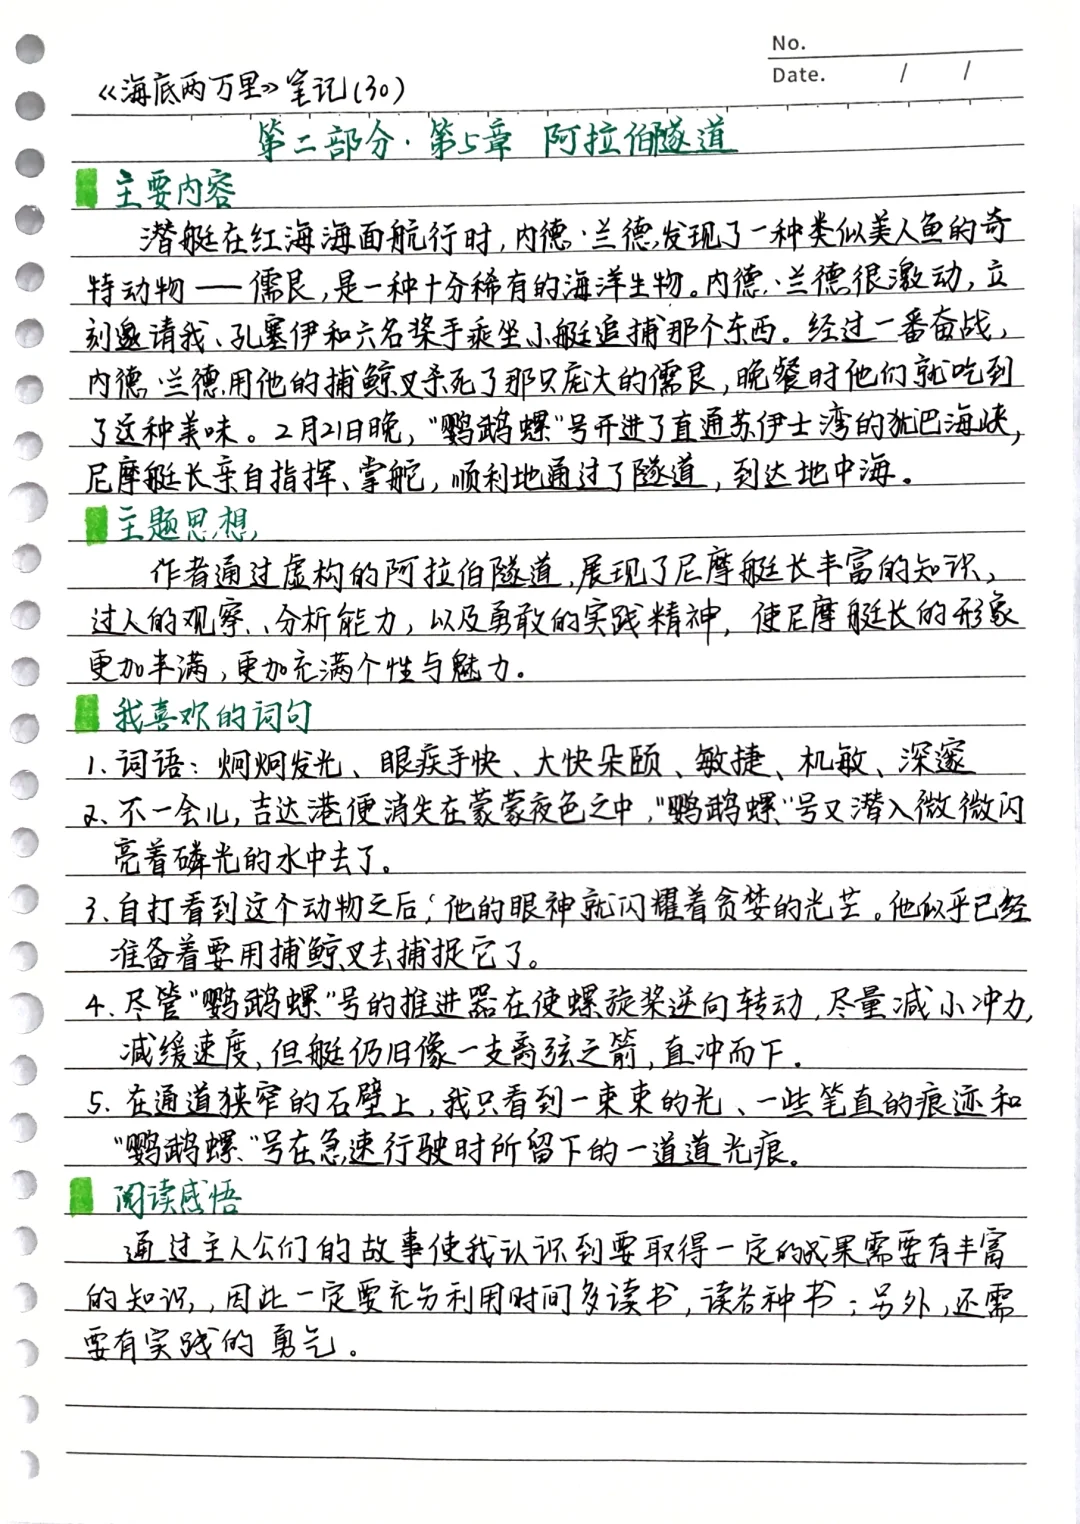 No.
Date. / /
《海底两万里》笔记(30)
第二部分·第5章 阿拉伯隧道
主要内容
潜艇在红海海面航行时,内德·兰德发现了一种类似美人鱼的奇
特动物——儒艮,是一种十分稀有的海洋生物。内德·兰德很激动,立
刻邀请我、孔塞伊和六名桨手乘坐小艇追捕那个东西。经过一番奋战,
内德·兰德用他的捕鲸叉杀死了那只庞大的儒艮,晚餐时他们就吃到
了这种美味。2月21日晚,“鹦鹉螺”号开进了直通苏伊士湾的犹巴海峡,
尼摩艇长亲自指挥、掌舵,顺利地通过了隧道,到达地中海。
主题思想
作者通过虚构的阿拉伯隧道,展现了尼摩艇长丰富的知识、
过人的观察、分析能力,以及勇敢的实践精神,使尼摩艇长的形象
更加丰满,更加充满个性与魅力。
我喜欢的词句
1.词语:炯炯发光、眼疾手快、大快朵颐、敏捷、机敏、深邃
2.不一会儿,吉达港便消失在蒙蒙夜色之中,“鹦鹉螺”号又潜入微微闪
亮着磷光的水中去了。
3.自打看到这个动物之后,他的眼神就闪耀着贪婪的光芒。他似乎已经
准备着要用捕鲸叉去捕捉它了。
4.尽管“鹦鹉螺”号的推进器在使螺旋桨逆向转动,尽量减小冲力,
减缓速度,但艇仍旧像一支离弦之箭,直冲而下.
5.在通道狭窄的石壁上,我只看到一束束的光、一些笔直的痕迹和
“鹦鹉螺”号在急速行驶时所留下的一道道光痕。
阅读感悟
通过主人公们的故事使我认识到要取得一定的成果需要有丰富
的知识,因此一定要充分利用时间多读书,读各种书;另外,还需
要有实践的勇气。